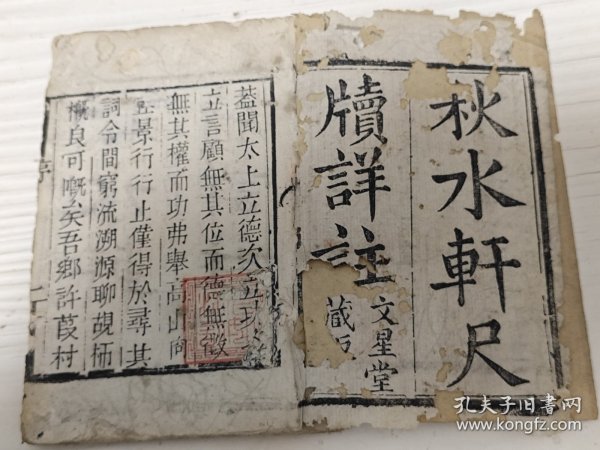 秋水軒尺
牘詳註
文星堂
藏
蓋聞太上立德次立功
立言顧無其位而德無徵
無其權而功弗舉高山向
景行行止僅得於尋其
詞令間窮流溯源聊覘梗
概良可嘅矣吾鄉許葭村
序
孔夫子旧書网
www.kongfz.com